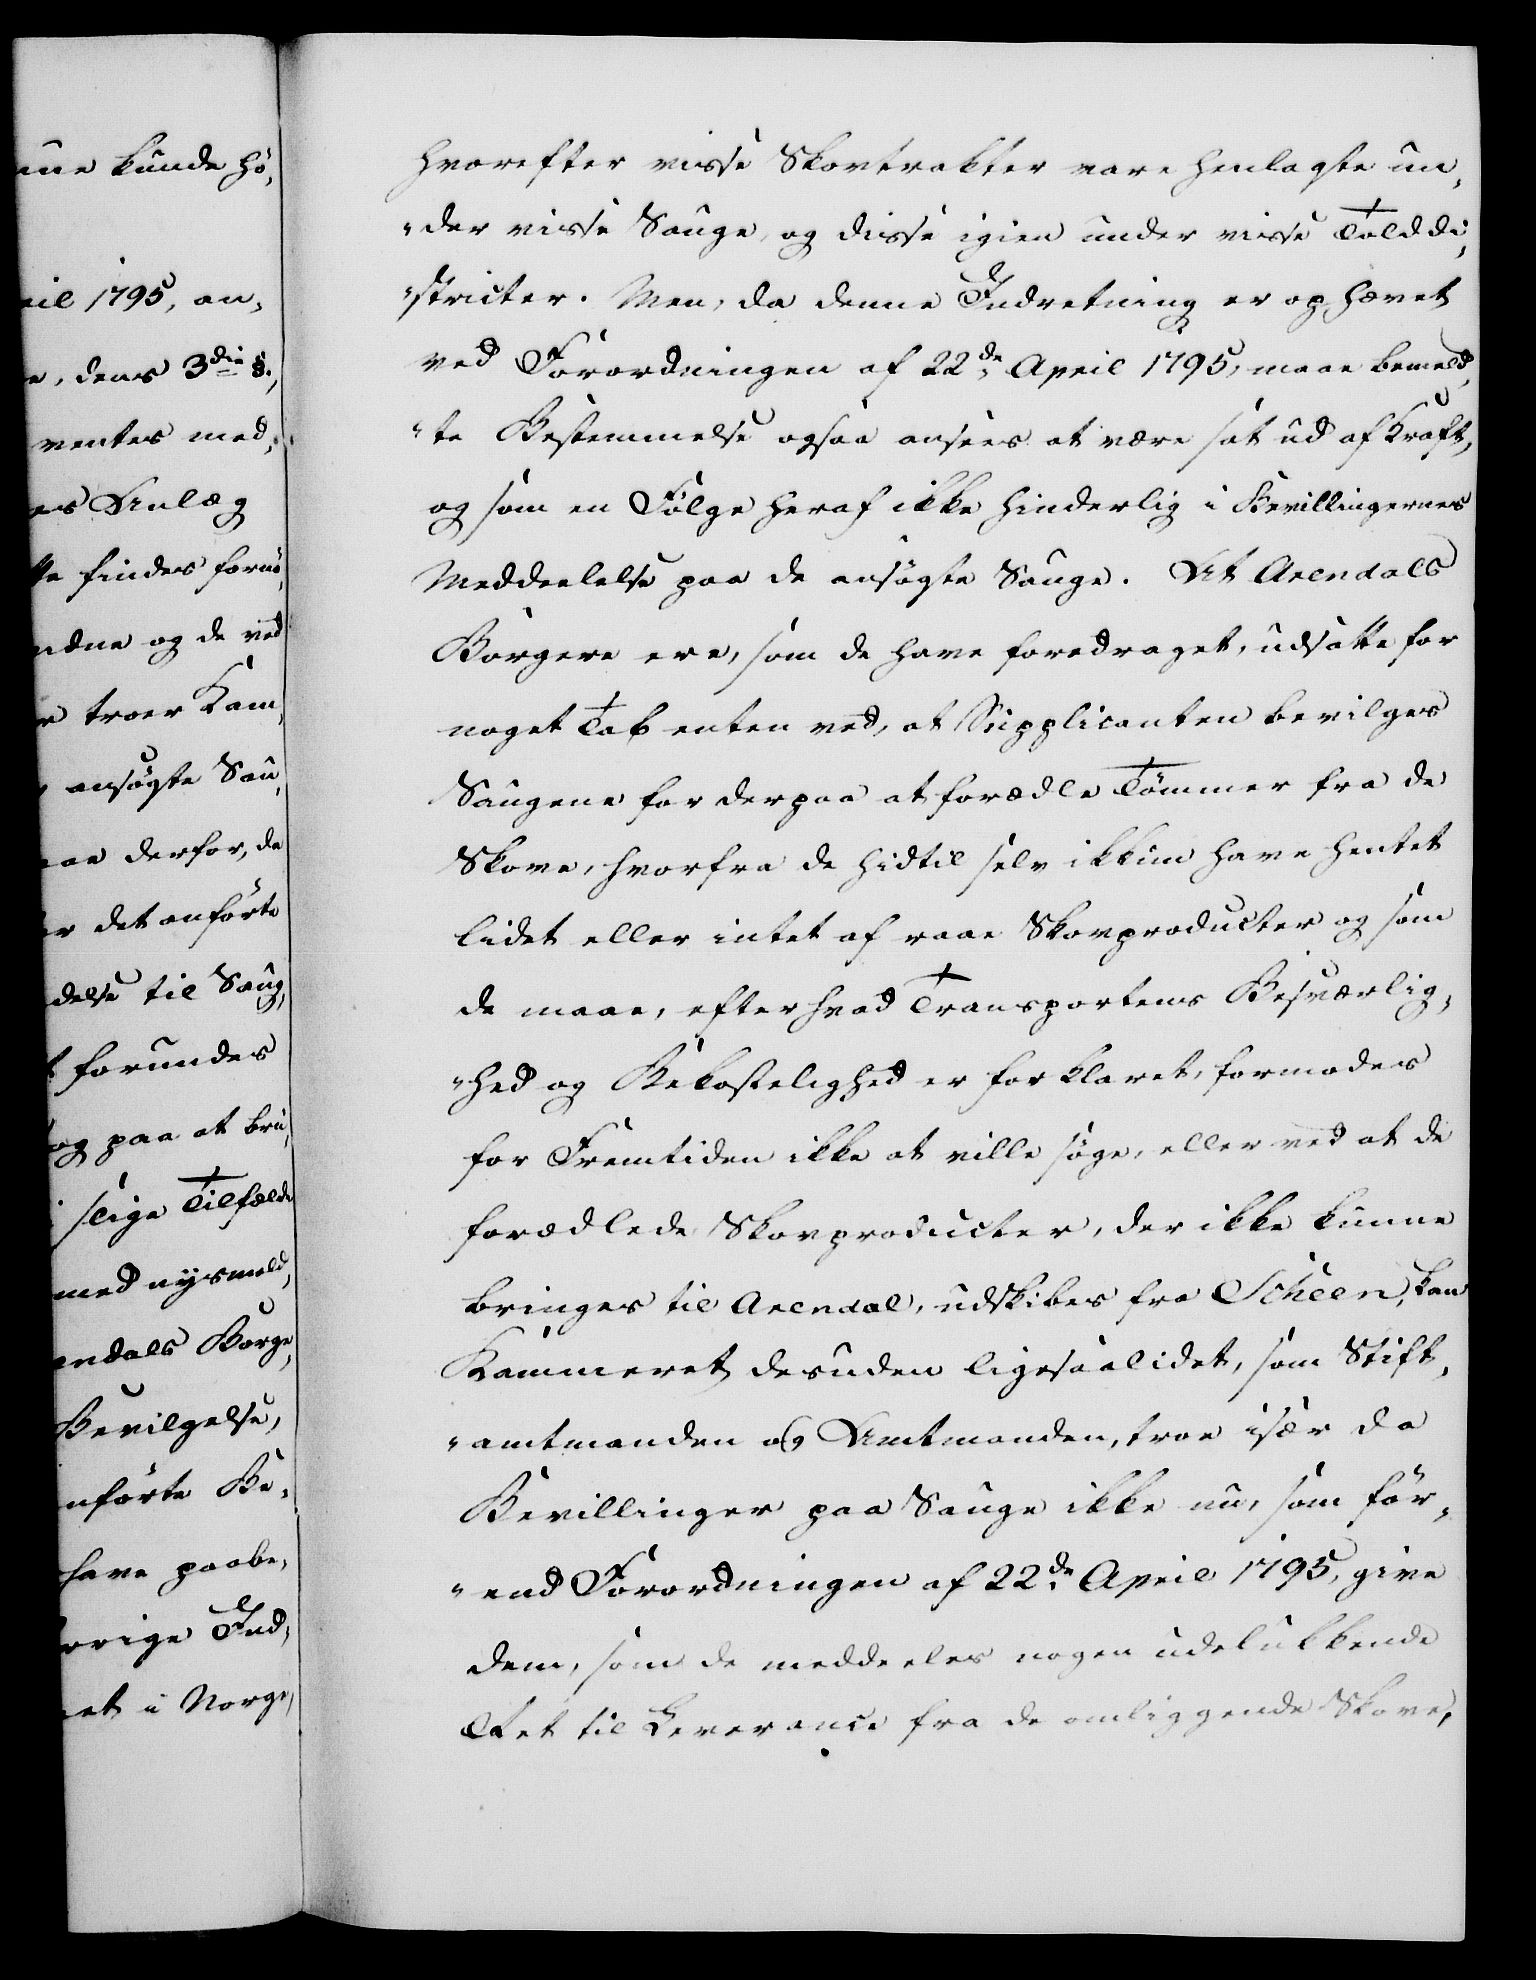 une kunde hö,
ril 1795, an,
e, dens 3die §.,
ventes med,
es Anlæg
te findes fornö,
ndne og de ved
r troer Kam,
ansögte Sau,
aae derfor, da
er det anförte
delse til Saug,
t forundes
og paa at bru,
slige Tilfælde
med nysmeld,
endals Borge,
Bevilgelse,
nförte Be,
have paabe,
rrige Ind,
et i Norge,
hvorefter visse Skovtrakter vare henlagte un,
"der visse Sauge, og disse igien under visse Tolddi,
"stricter. Men, da denne Indretning er ophævet
ved Forordningen af 22de April 1795, maae bemeld,
"te Bestemmelse ogsaa ansees at være sat ud af Kraft,
og som en Fölge heraf ikke hinderlig i Bevillingernes
Meddeelelse paa de ansögte Sauge. At Arendals
Borgere ere, som de have foredraget, udsatte for
noget Tab enten ved, at Supplicanten bevilges
Saugene for derpaa at forædle Tömmer fra de
Skove, hvorfra de hidtil selv ikkun have hentet
lidet eller intet af raae Skovproducter og som
de maae, efter hvad Transportens Besværlig,
"hed og Bekostelighed er forklaret, formodes
for Fremtiden ikke at ville söge, eller ved at de
forædlede Skovproducter, der ikke kunne
bringes til Arendal, udskibes fra Scheen, kan
Kammeret desuden ligesaalidet, som Stift,
"amtmanden og Amtmanden, troe især da
Bevillinger paa Sauge ikke nu, som för,
"end Forordningen af 22de April 1795, give
dem, som de meddeeles nogen udelukkende
Ret til Leverance fra de omliggende Skove,